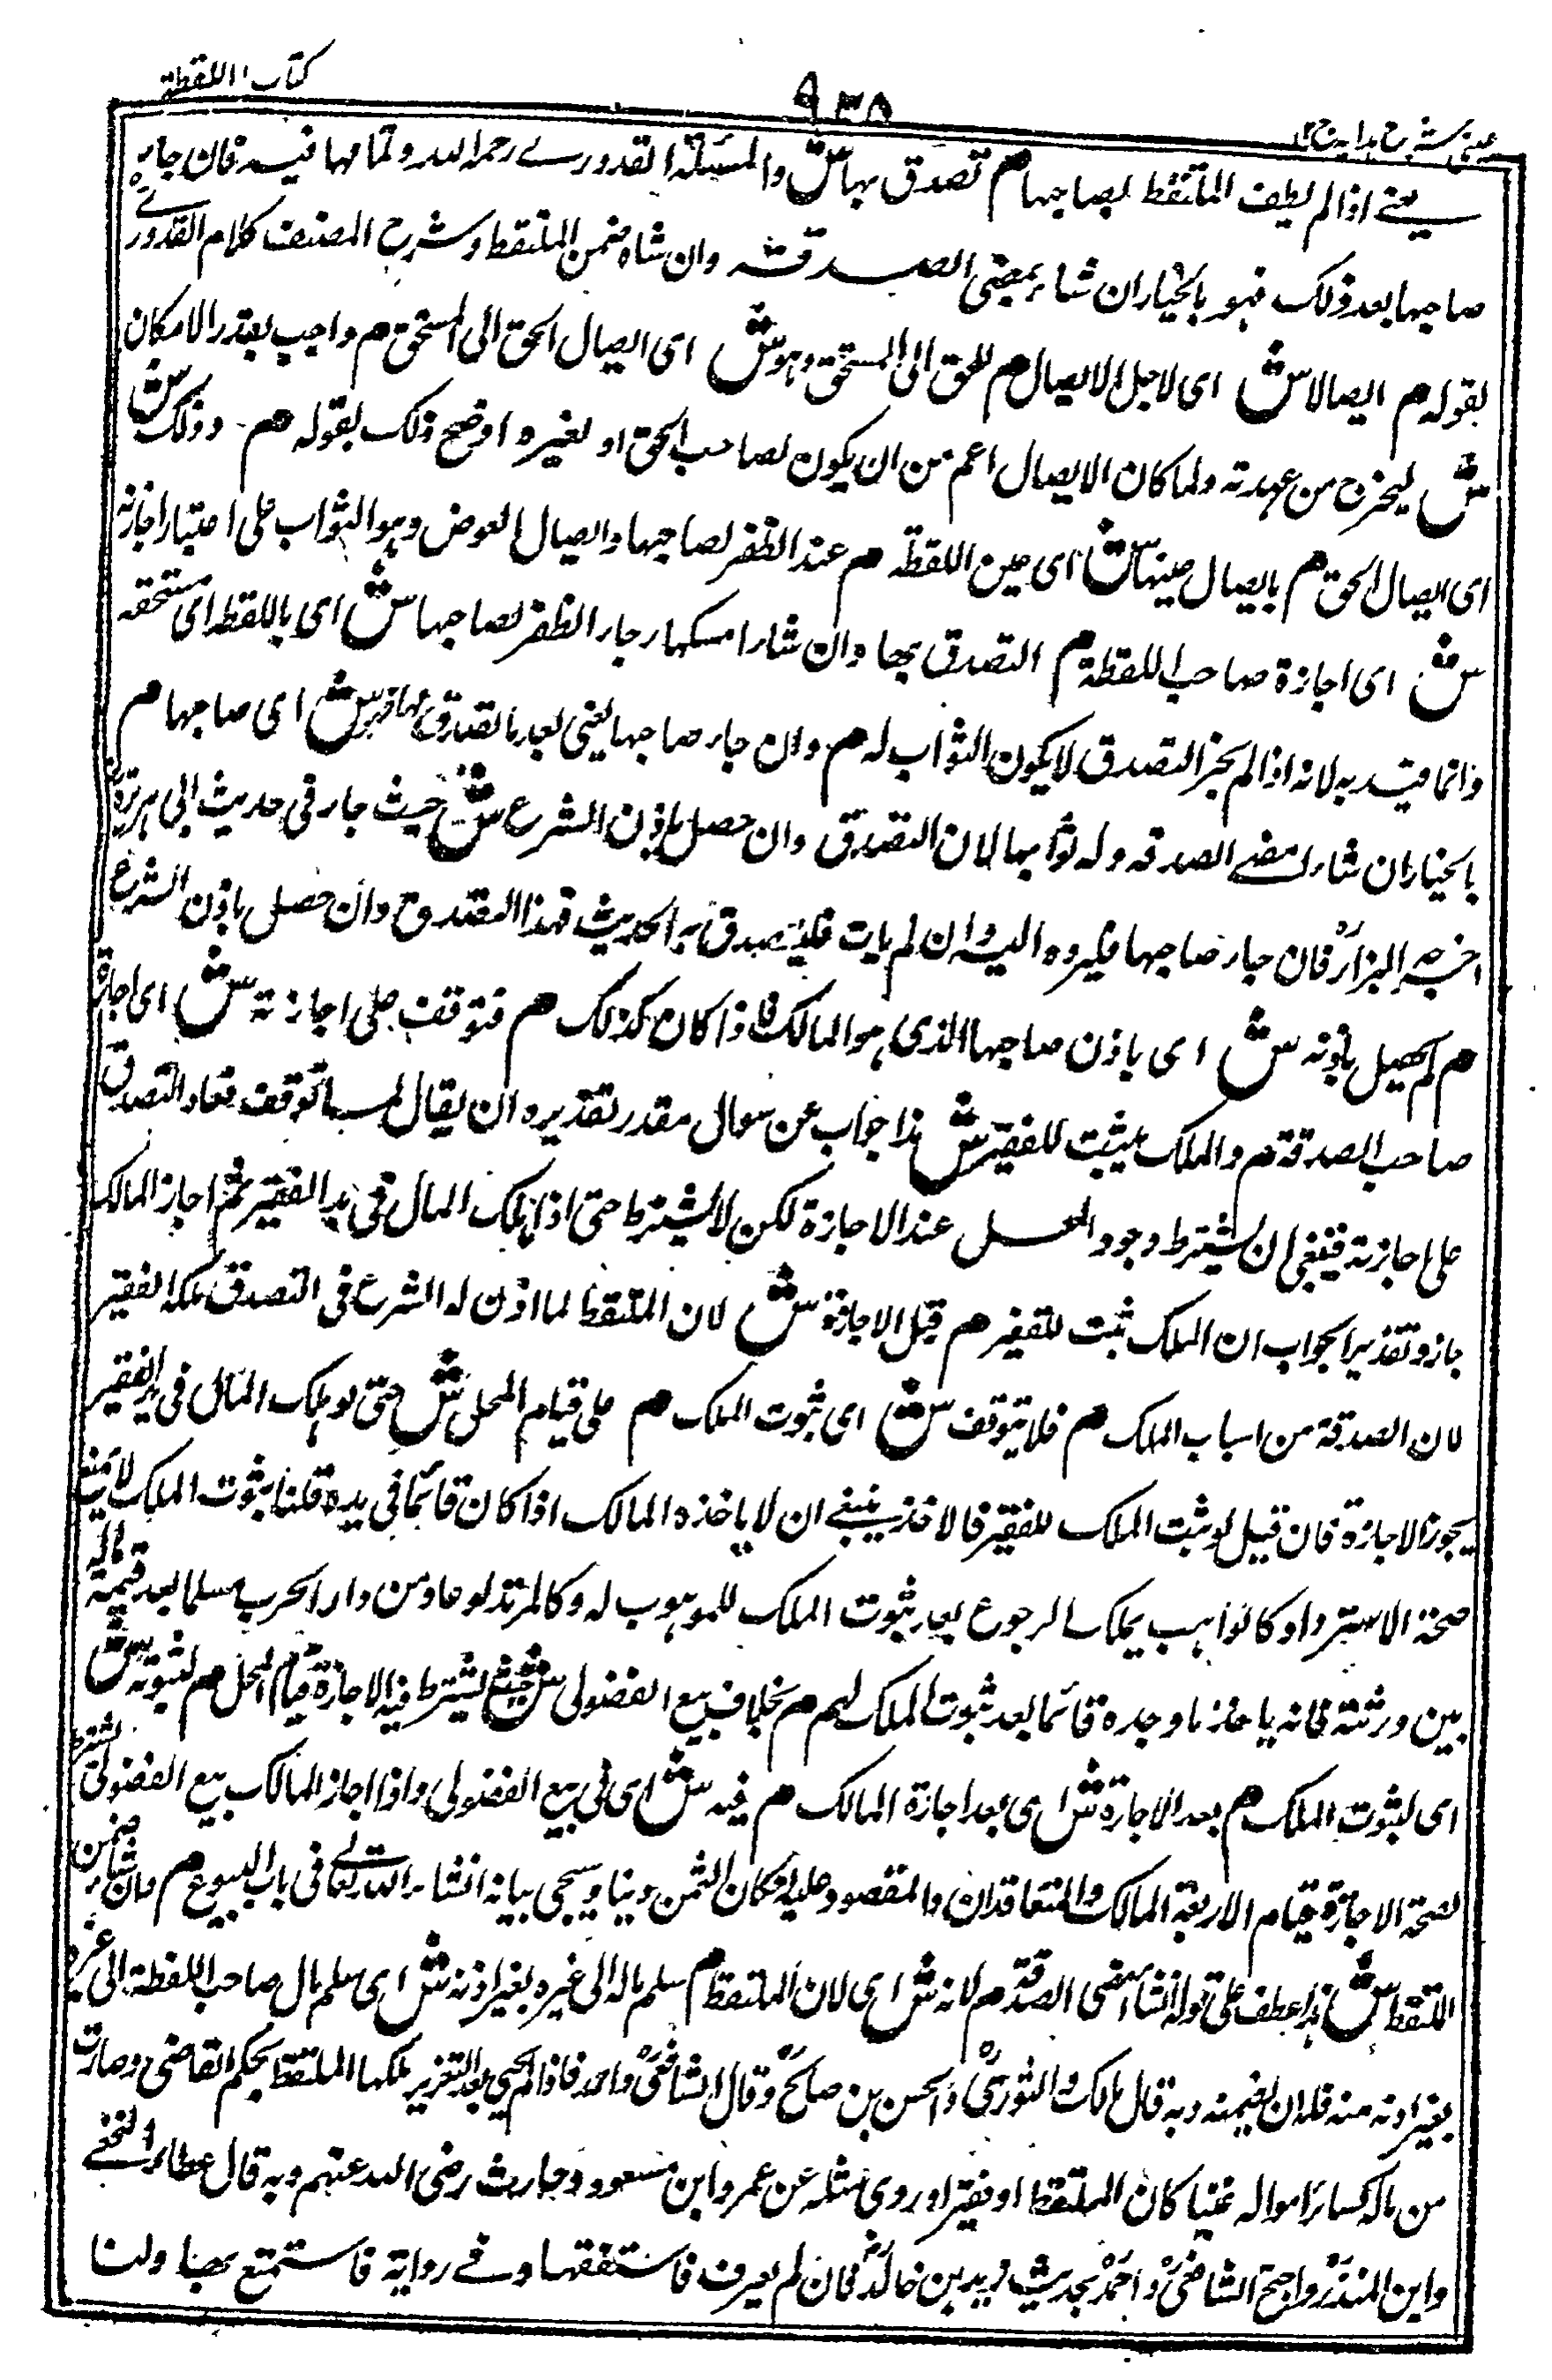 كتاب اللقطة
٩٣٥
عينى شرح هدايه ج٢
يعنے اذا لم يظفر الملتقط بصاحبها م تصدق بها ش والمسئلة القدورے رحمه الله وتمامها فيه فان جاء
صاحبها بعد ذلك فهو بالخيار ان شاء يمضى الصدقة وان شاء ضمن الملتقط وشرح المصنف كلام القدورے
بقوله م ايصالا ش اى لاجل الايصال م للحق الى المستحق وهو ش اى ايصال الحق الى المستحق م واجب بقدر الامكان
ش ليخرج من عهدته ولما كان الايصال اعم من ان يكون لصاحب الحق او لغيره اوضح ذلك بقوله م وذلك ش
اى ايصال الحق م بايصال عينها ش اى عين اللقطة م عند الظفر لصاحبها وايصال العوض وهو الثواب على اعتبار اجازته
ش اى اجازة صاحب اللقطة م التصدق بها وان شاء امسكها رجاء الظفر لصاحبها ش اى باللقطة اى مستحقه
وانما قيد به لانه اذا لم يجز التصدق لا يكون الثواب له م وان جاء صاحبها يعنى بعد ما تصدق بها فهو ش اى صاحبها م
بالخيار ان شاء امضے الصدقه وله ثوابها لان التصدق وان حصل باذن الشرع ش حيث جاء فى حديث ابى هريرة
اخرجه البزار فان جاء صاحبها فليرده اليه وان لم يات فليتصدق به الحديث فهذا التصدق وان حصل باذن الشرع
م لم يحصل باذنه ش اى باذن صاحبها الذى هو المالك فاذا كان كذلك م فتوقف على اجازته ش اى اجازة
صاحب الصدقة م والملك يثبت للفقير ش هذا جواب عن سوال مقدر تقديره ان يقال لما توقف نفاد التصدق
على اجازته فينبغى ان يشترط وجود المحل عند الاجازة لكن لا يشترط حتى اذا هلك المال فى يد الفقير ثم اجاز المالك
جاز وتقدير الجواب ان الملك ثبت للفقير م قبل الاجازة ش لان الملتقط لما اذن له الشرع فى التصدق ملكه الفقير
لان الصدقة من اسباب الملك م فلا يتوقف ش اى ثبوت الملك م على قيام المحل ش حتى لو هلك المال فى يد الفقير
يجوز الاجازة فان قيل لو ثبت الملك للفقير فالاخذ ينبغے ان لا ياخذه المالك اذا كان قائما فى يده قلنا ثبوت الملك لا يمنع
صحة الاسترداد كالواهب يملك الرجوع بعد ثبوت الملك للموهوب له وكالمرتد لو عاد من دار الحرب مسلما بعد قسمة ماله
بين ورثته فانه ياخذ ما وجده قائما بعد ثبوت الملك لهم م بخلاف بيع الفضولى ش حيث يشترط فيه الاجازة قيام المحل م لثبوته ش
اى لثبوت الملك م بعد الاجازة ش اى بعد اجازة المالك م فيه ش اى فى بيع الفضولى واذا اجاز المالك بيع الفضولى يشترط
لصحة الاجازة قيام الاربعة المالك والمتعاقدان والمقصود عليه فكان الثمن دينا وسيجى بيانه انشاء الله تعالى فى باب البيوع م وان شاء ضمن
الملتقط ش هذا عطف على قوله ان شاء امضى الصدقة م لانه ش اى لان الملتقط م سلم ماله الى غيره بغير اذنه ش اى سلم مال صاحب اللقطة الى غيره
بغير اذنه منه فله ان يضمنه وبه قال مالك والثورى والحسن بن صالح وقال الشافعى واحمد فاذا لم يجى بعد التعزير ملكها الملتقط بحكم القاضى وصارت
من ماله كسائر امواله غنيا كان الملتقط او فقيرا وروى مثله عن عمر وابن مسعود وجارث رضى الله عنهم وبه قال عطاء والنخعے
وابن المنذر واحتج الشافعى واحمد بحديث زيد بن خالد فان لم يعرف فاستنفقها وفے رواية فاستمتع بها ولنا